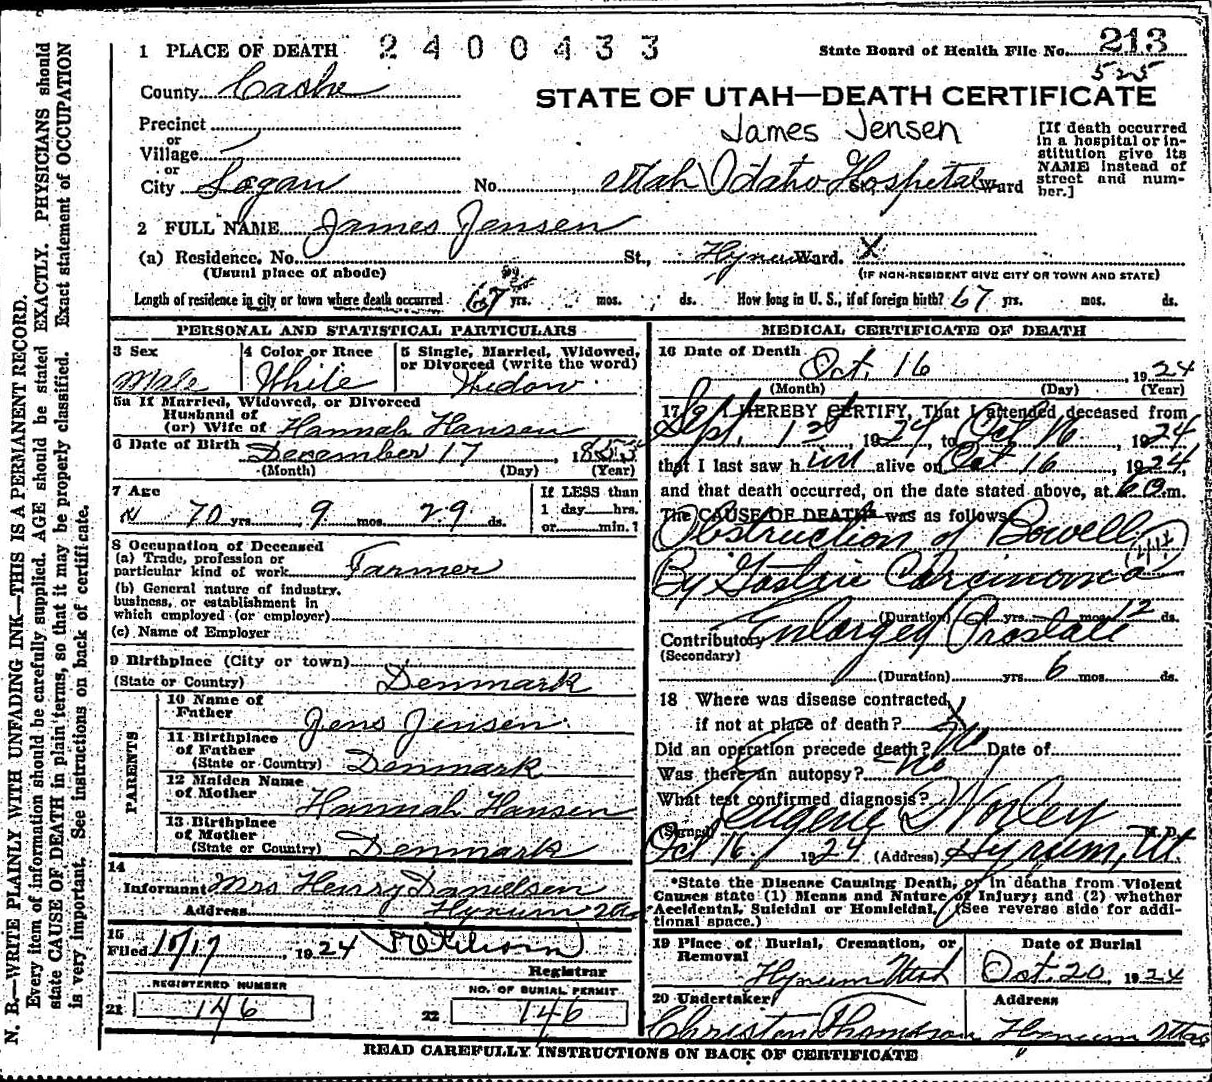 1 PLACE OF DEATH 2400433 State Board of Health File No. 213
525
County Cache
STATE OF UTAH—DEATH CERTIFICATE
Precinct
or
Village
or
City Logan No. Utah Idaho Hospital St., Ward
James Jensen
[If death occurred
in a hospital or in-
stitution give its
NAME instead of
street and num-
ber.]
2 FULL NAME James Jensen
(a) Residence, No. St., Hyrum Ward. X
(Usual place of abode) (IF NON-RESIDENT GIVE CITY OR TOWN AND STATE)
Length of residence in city or town where death occurred 67 yrs. mos. ds. How long in U. S., if of foreign birth? 67 yrs. mos. ds.
PERSONAL AND STATISTICAL PARTICULARS
3 Sex
Male
4 Color or Race
White
5 Single, Married, Widowed,
or Divorced (write the word)
Widow
5a If Married, Widowed, or Divorced
Husband of
(or) Wife of Hannah Hansen
6 Date of Birth December 17, 1853
(Month) (Day) (Year)
7 Age
70 yrs. 9 mos. 29 ds.
If LESS than
1 day hrs.
or min.?
8 Occupation of Deceased
(a) Trade, profession or
particular kind of work Farmer
(b) General nature of industry,
business, or establishment in
which employed (or employer)
(c) Name of Employer
9 Birthplace (City or town)
(State or Country) Denmark
PARENTS
10 Name of
Father Jens Jensen
11 Birthplace
of Father
(State or Country) Denmark
12 Maiden Name
of Mother Hannah Hansen
13 Birthplace
of Mother
(State or Country) Denmark
14
Informant Mrs Henry Danielsen
Address Hyrum Utah
15
Filed 10/17, 1924
Registrar
REGISTERED NUMBER
21 146
NO. OF BURIAL PERMIT
22 146
MEDICAL CERTIFICATE OF DEATH
16 Date of Death Oct. 16, 1924
(Month) (Day) (Year)
17 I HEREBY CERTIFY, That I attended deceased from
Sept. 1st, 1924, to Oct 16, 1924
that I last saw him alive on Oct 16, 1924
and that death occurred, on the date stated above, at 6 a.m.
The CAUSE OF DEATH* was as follows:
Obstruction of Bowell
By Gastric Carcinoma
(Duration) yrs. mos. 12 ds.
Contributory Enlarged Prostate
(Secondary)
(Duration) yrs. 6 mos. ds.
18 Where was disease contracted,
if not at place of death?
Did an operation precede death? No Date of
Was there an autopsy? No
What test confirmed diagnosis?
(Signed) Eugene D Worley M. D.
Oct 16 1924 (Address) Hyrum, Ut.
*State the Disease Causing Death, or in deaths from Violent
Causes state (1) Means and Nature of Injury; and (2) whether
Accidental, Suicidal or Homicidal. (See reverse side for addi-
tional space.)
19 Place of Burial, Cremation, or
Removal
Hyrum Utah
Date of Burial
Oct. 20, 1924
20 Undertaker
Christen Thomsson
Address
Hyrum Utah
READ CAREFULLY INSTRUCTIONS ON BACK OF CERTIFICATE
N. B.—WRITE PLAINLY WITH UNFADING INK—THIS IS A PERMANENT RECORD.
Every item of information should be carefully supplied. AGE should be stated EXACTLY. PHYSICIANS should
state CAUSE OF DEATH in plain terms, so that it may be properly classified. Exact statement of OCCUPATION
is very important. See instructions on back of certificate.